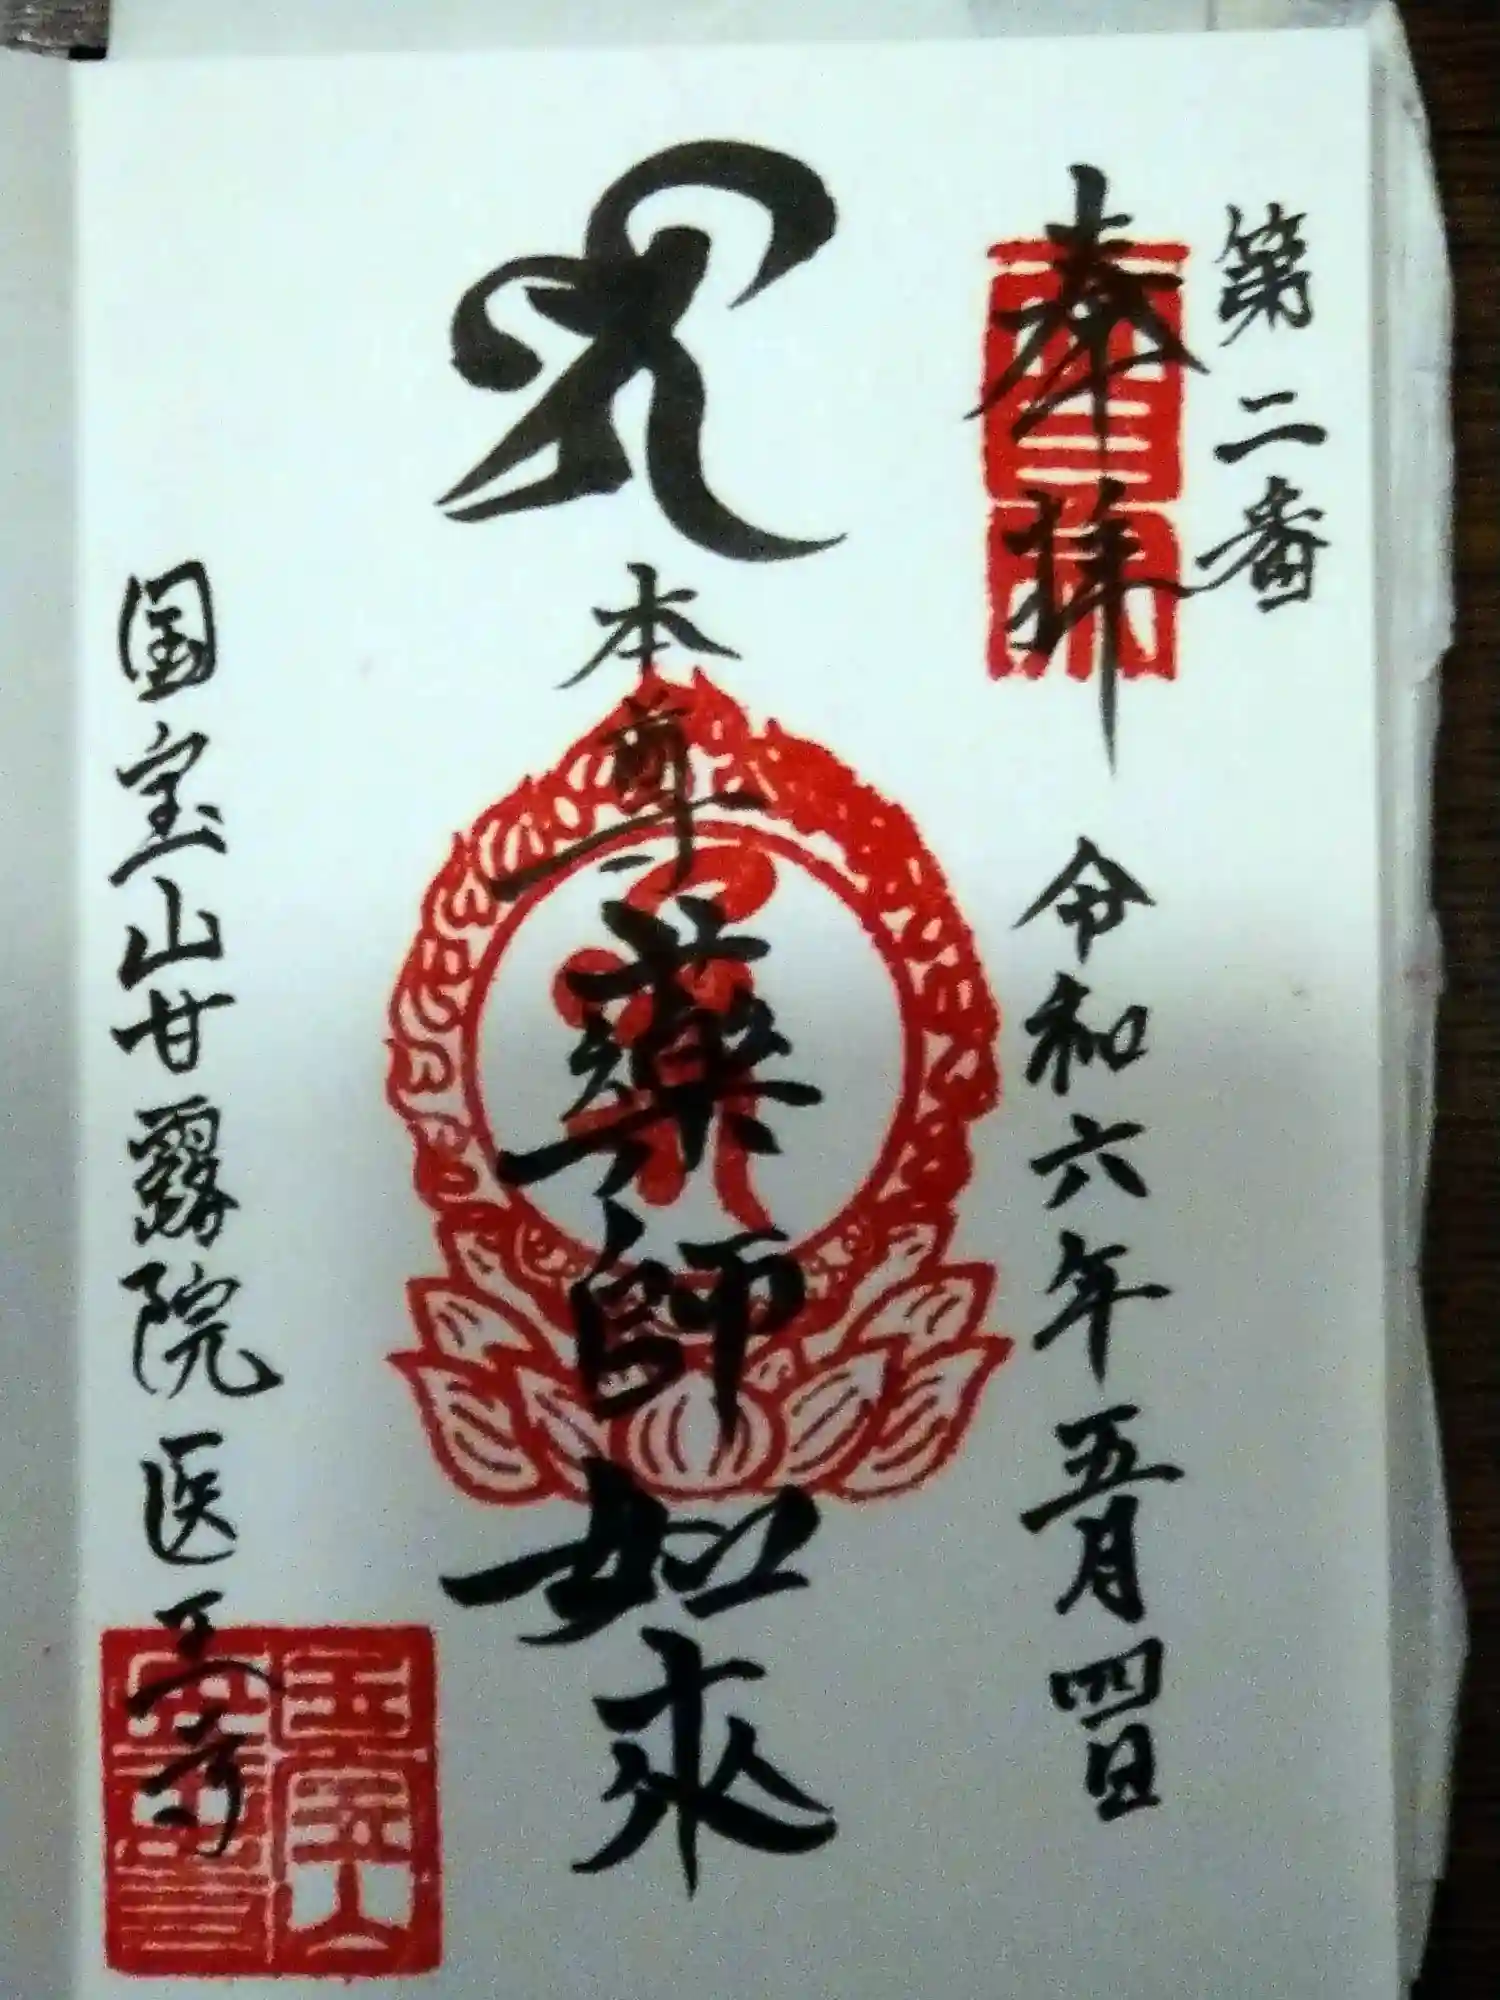 第二番
奉拝
令和六年五月四日
本尊薬師如來
国宝山甘露院医王寺